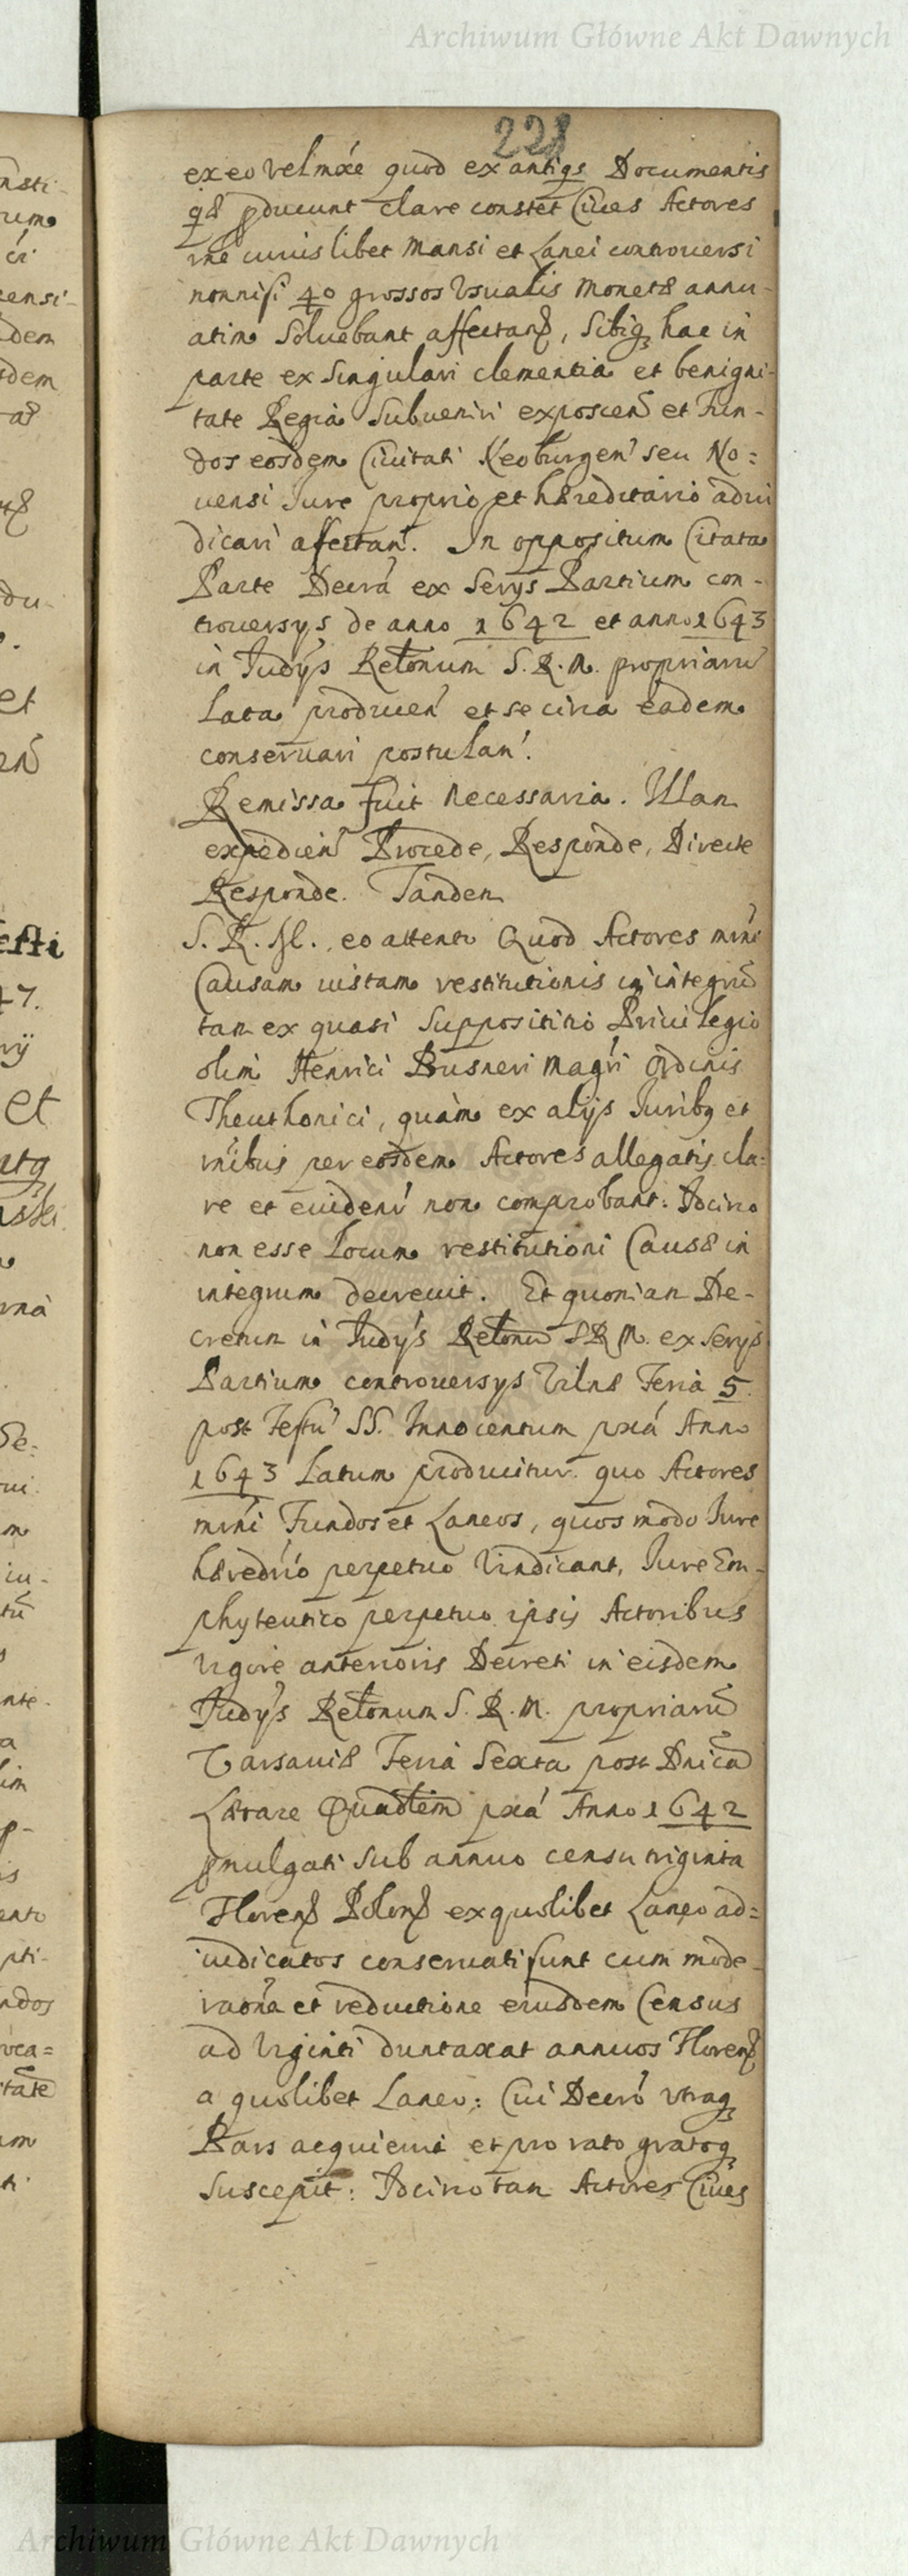 Archiwum Główne Akt Dawnych
228
ex eo vel maxe quod ex antiqs Documentis
qæ pducunt clare constet Cives Actores
rne cuius libet Mansi et Lanei controuersi
nonnisi 40 grossos Vsualis Monetæ annu-
atim Soluebant affectan, Sibiq hac in
parte ex Singulari clementia et benigni-
tate Regia Subueniri exposcen et Fun-
dos eosdem Ciuitati Neoburgen seu No:
uensi Jure proprio et hæreditario adiu
dicari affectan. In oppositum Citata
Parte Decra ex Serys Partium con-
trouersys de anno 1642 et anno 1643
in Judys Retonum S.R.M. propriaru
Lata producen et se circa eadem
conseruari postulan.
Remissa fuit Necessaria. Illam
expedien Procede, Responde, Directe
Responde. Tandem
S. R. M., eo attento Quod Actores mni
Causam iustam restitutionis in integru
tam ex quasi Supposititio Priuilegio
olim Henrici Pusneri Magri Ordinis
Theuthonici, quàm ex alijs Juribq et
rnibus per eosdem Actores allegatis cla:
re et euiden non comprobant: Idcirco
non esse Locum restitutioni Causæ in
integrum decreuit. Et quoniam De-
cretum in Judys Retonu SRM. ex Serys
Partium controuersys Vilnæ Feria 5.
post Festu SS. Innocentum pxa Anno
1643 Latum producitur quo Actores
mni Fundos et Laneos, quos modo Jure
hæredrio perpetuo Vindicant, Jure Em-
phyteutico perpetuo ipsis Actoribus
Vigore anterioris Decreti in eisdem
Judys Retonum S.R.M. propriaru
Varsauiæ Feria Sexta post Dnica
Lætare Quadlem pxa Anno 1642
pmulgati Sub annuo censu triginta
Floren Polon ex quolibet Laneo ad=
iudicatos conseruati sunt cum mode-
raone et reductione eiusdem Census
ad Viginti duntaxat annuos Floren
a quolibet Laneo: Cui Decro vtraq
Pars acquieuit et pro rato gratoq
Suscepit: Idcirco tam Actores Ciues
Archiwum Główne Akt Dawnych